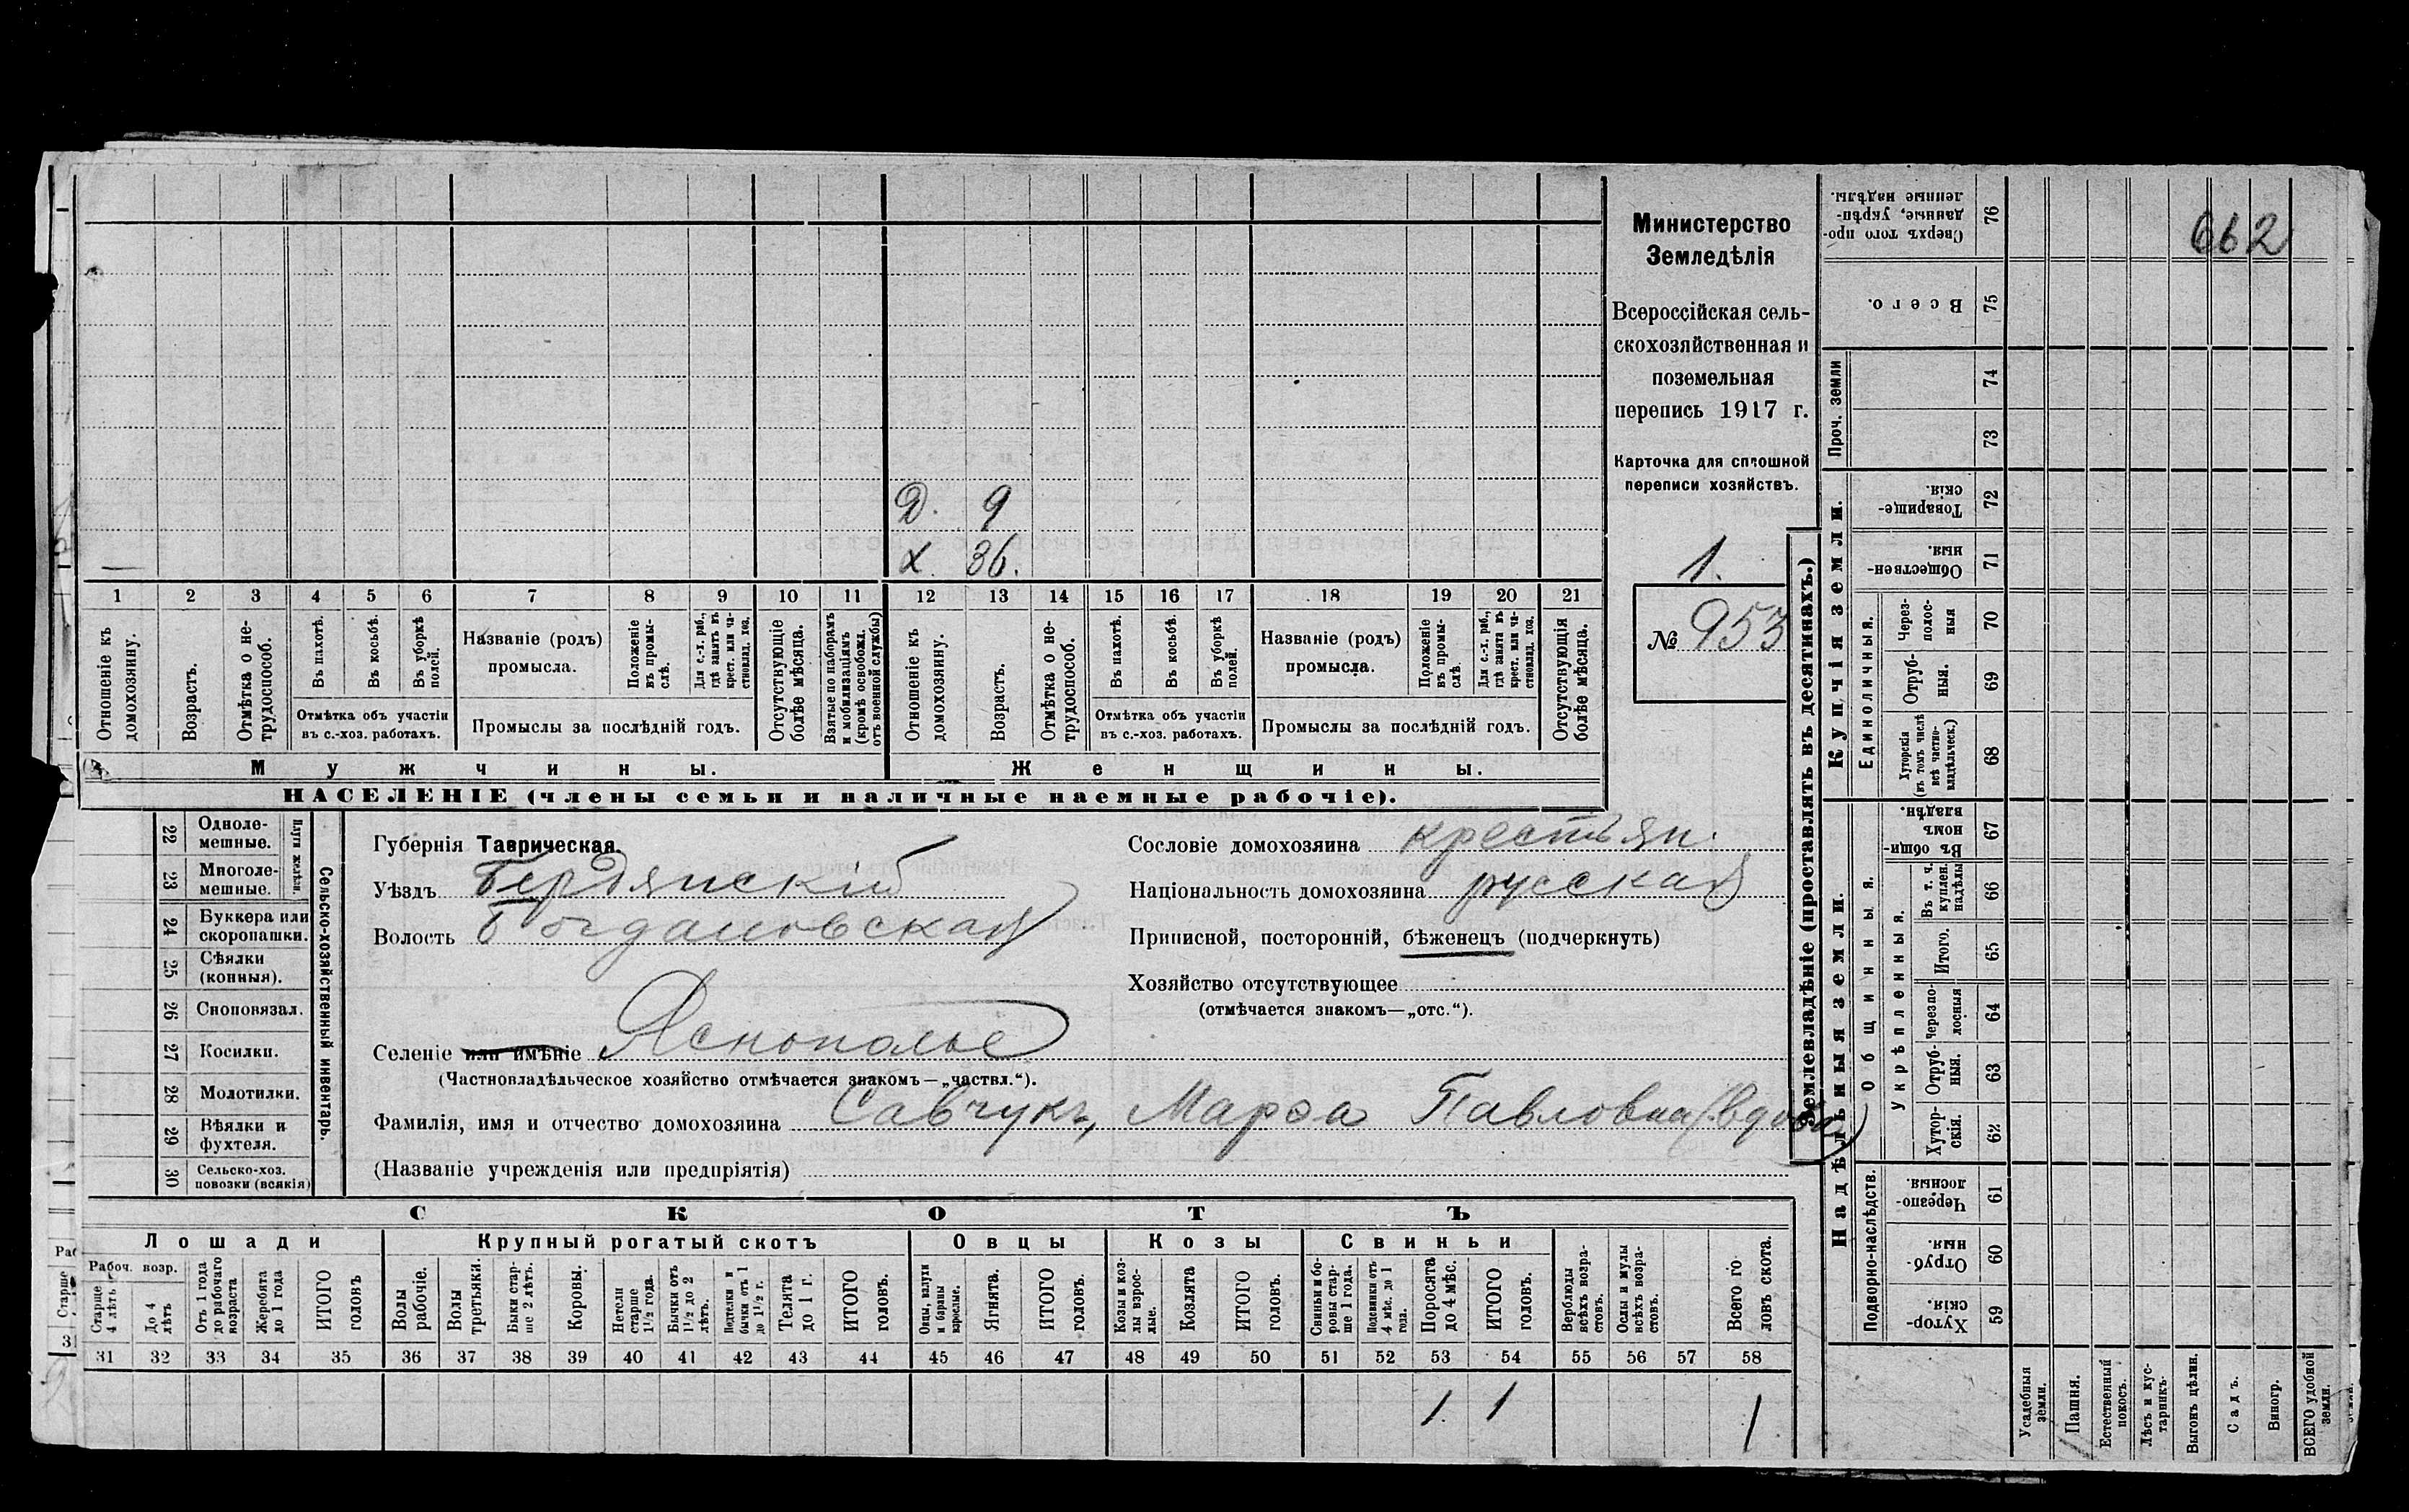 662
Министерство
Земледѣлія
Всероссійская сель-
скохозяйственная и
поземельная
перепись 1917 г.
Карточка для сплошной
переписи хозяйствъ.
1.
№ 953
Д. 9
Х. 36.
1 2 3 4 5 6 7 8 9 10 11 12 13 14 15 16 17 18 19 20 21
Отношеніе къ домохозяину.
Возрастъ.
Отмѣтка о не-трудоспособ.
Въ пахотѣ.
Въ косьбѣ.
Въ уборкѣ полей.
Отмѣтка объ участіи
въ с.-хоз. работахъ.
Названіе (родъ)
промысла.
Положеніе въ промы-слѣ.
Для с.-х. раб., гдѣ занятъ въ крест. или ча-стновлад. хоз.
Промыслы за послѣдній годъ.
Отсутствующіе болѣе мѣсяца.
Взятые по наборамъ и мобилизаціямъ (кромѣ освобожд. отъ военной службы)
Отношеніе къ домохозяину.
Возрастъ.
Отмѣтка о не-трудоспособ.
Въ пахотѣ.
Въ косьбѣ.
Въ уборкѣ полей.
Отмѣтка объ участіи
въ с.-хоз. работахъ.
Названіе (родъ)
промысла.
Положеніе въ промы-слѣ
Для с.-х. раб., гдѣ занятъ въ крест. или ча-стновлад. хоз.
Промыслы за послѣдній годъ.
Отсутствующія болѣе мѣсяца.
Мужчины.
Женщины.
НАСЕЛЕНІЕ (члены семьи и наличные наемные рабочіе).
22 Одноле-мешные.
23 Многоле-мешные.
Плуги желѣзн.
24 Буккера или скоропашки.
25 Сѣялки (конныя).
26 Сноповязал.
27 Косилки.
28 Молотилки.
29 Вѣялки и фухтеля.
30 Сельско-хоз. повозки (всякія)
Сельско-хозяйственный инвентарь.
Губернія Таврическая.
Уѣздъ Бердянскій
Волость Богдановская
Селеніе или имѣніе Яснополье
(Частновладѣльческое хозяйство отмѣчается знакомъ—„частвл.“).
Фамилія, имя и отчество домохозяина Савчукъ, Марѳа Павловна (вдова)
(Названіе учрежденія или предпріятія)
Сословіе домохозяина крестьян.
Національность домохозяина русская
Приписной, посторонній, бѣженецъ (подчеркнуть)
Хозяйство отсутствующее
(отмѣчается знакомъ—„отс.“).
СКОТЪ
Лошади
Крупный рогатый скотъ
Овцы
Козы
Свиньи
Рабоч. возр.
Старше 4 лѣтъ
До 4 лѣтъ
Отъ 1 года до рабочаго возраста
Жеребята до 1 года
ИТОГО головъ
Волы рабочіе.
Волы третьяки.
Быки стар-ше 2 лѣтъ.
Коровы.
Нетели старше 1½ года.
Бычки отъ 1½ до 2 лѣтъ.
Подтелки и бычки отъ 1 до 1½ г.
Телята до 1 г.
ИТОГО головъ.
Овцы, валухи и бараны взрослые.
Ягнята.
ИТОГО головъ.
Козы и коз-лы взрос-лые.
Козлята
ИТОГО головъ.
Свиньи и бо-ровы стар-ше 1 года.
Подсвинки отъ 4 мѣс. до 1 года.
Поросята до 4 мѣс.
ИТОГО головъ.
Верблюды всѣхъ возра-стовъ.
Ослы и мулы всѣхъ возра-стовъ.
Всего го-ловъ скота.
31 32 33 34 35 36 37 38 39 40 41 42 43 44 45 46 47 48 49 50 51 52 53 54 55 56 57 58
1 1 1
Землевладѣніе (проставлять въ десятинахъ.)
Надѣльныя земли.
Купчія земли.
Проч. земли
Подворно-наслѣдств.
Общинныя.
Укрѣпленныя.
Единоличныя.
Сверхъ того про-данные, укрѣп-ленные надѣлы. 76
Всего. 75
74
73
Товарище-скія. 72
Обществен-ныя. 71
Через-полос-ныя 70
Отруб-ныя. 69
Хуторскія (въ томъ числѣ всѣ частно-владѣльческ.) 68
Въ общи-номъ владѣн. 67
Въ т. ч. куплен. надѣлы 66
Итого. 65
Черезпо-лосныя 64
Отруб-ныя. 63
Хутор-скія. 62
Черезпо-лосныя. 61
Отруб-ныя. 60
Хутор-скія. 59
Усадебныя земли.
Пашня.
Естественный покосъ.
Лѣсъ и кус-тарникъ.
Выгонъ цѣлин.
Садъ.
Виногр.
ВСЕГО удобной земли.